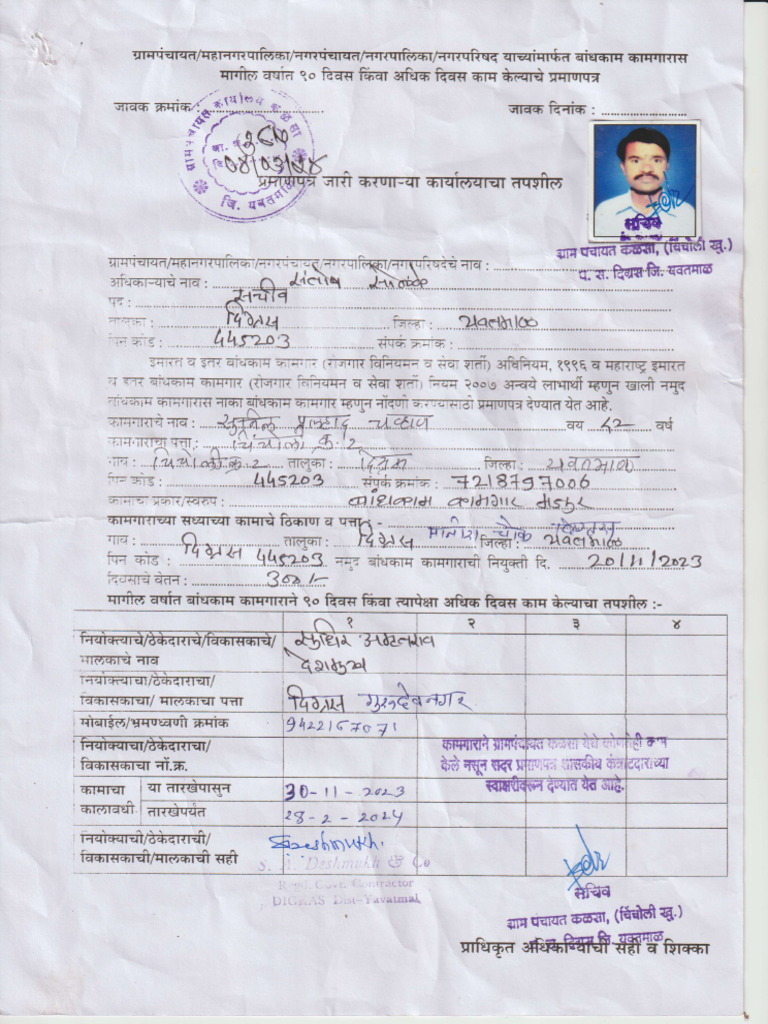 ग्रामपंचायत/महानगरपालिका/नगरपंचायत/नगरपालिका/नगरपरिषद याच्यांमार्फत बांधकाम कामगारास
मागील वर्षात ९० दिवस किंवा अधिक दिवस काम केल्याचे प्रमाणपत्र
जावक क्रमांक :
जावक दिनांक : ........................
ग्रामपंचायत कार्यालय कळसा
जि. यवतमाळ
प्रमाणपत्र जारी करणाऱ्या कार्यालयाचा तपशील
सचिव
ग्राम पंचायत कळसा, (चिंचोली खु.)
प. स. दिग्रस जि. यवतमाळ
ग्रामपंचायत/महानगरपालिका/नगरपंचायत/नगरपालिका/नगरपरिषदेचे नाव :
अधिकाऱ्याचे नाव : संतोष
पद : सचीव
तालुका : दिग्रस जिल्हा : यवतमाळ
पिन कोड : 445203 संपर्क क्रमांक :
इमारत व इतर बांधकाम कामगार (रोजगार विनियमन व सेवा शर्ती) अधिनियम, १९९६ व महाराष्ट्र इमारत
व इतर बांधकाम कामगार (रोजगार विनियमन व सेवा शर्ती) नियम २००७ अन्वये लाभार्थी म्हणुन खाली नमुद
बांधकाम कामगारास नाका बांधकाम कामगार म्हणुन नोंदणी करण्यासाठी प्रमाणपत्र देण्यात येत आहे.
कामगाराचे नाव : सुनिल प्रल्हाद चव्हाण वय ४२ वर्ष
कामगाराचा पत्ता : चिंचोली क्र. 2
गाव : चिंचोली क्र. 2 तालुका : दिग्रस जिल्हा : यवतमाळ
पिन कोड : 445203 संपर्क क्रमांक : 7218797006
कामाचा प्रकार/स्वरुप : बांधकाम कामगार मजुर
कामगाराच्या सध्याच्या कामाचे ठिकाण व पत्ता :- चौक दिग्रस
गाव : दिग्रस तालुका : दिग्रस जिल्हा : यवतमाळ
पिन कोड : 445203 नमुद बांधकाम कामगाराची नियुक्ती दि. 20/11/2023
दिवसाचे वेतन : 300/-
मागील वर्षात बांधकाम कामगाराने ९० दिवस किंवा त्यापेक्षा अधिक दिवस काम केल्याचा तपशील :-
१ २ ३ ४
नियोक्त्याचे/ठेकेदाराचे/विकासकाचे/ सुधिर अमृतराव
मालकाचे नाव देशमुख
नियोक्त्याचा/ठेकेदाराचा/
विकासकाचा/ मालकाचा पत्ता दिग्रस गुरुदेवनगर
मोबाईल/भ्रमणध्वणी क्रमांक 9422167071
नियोक्याचा/ठेकेदाराचा/
विकासकाचा नों.क्र.
कामगाराने ग्रामपंचायत कळसा येथे कोणतेही काम
केले नसून सदर प्रमाणपत्र शासकीय कंत्राटदाराच्या
स्वाक्षरीवरून देण्यात येत आहे.
कामाचा या तारखेपासुन 30-11-2023
कालावधी तारखेपर्यंत 28-2-2024
नियोक्त्याची/ठेकेदाराची/
विकासकाची/मालकाची सही Sdeshmukh.
S. A. Deshmukh & Co
Regd. Govt. Contractor
DIGRAS Dist-Yavatmal
सचिव
ग्राम पंचायत कळसा, (चिंचोली खु.)
प. स. दिग्रस जि. यवतमाळ
प्राधिकृत अधिकाऱ्याची सही व शिक्का